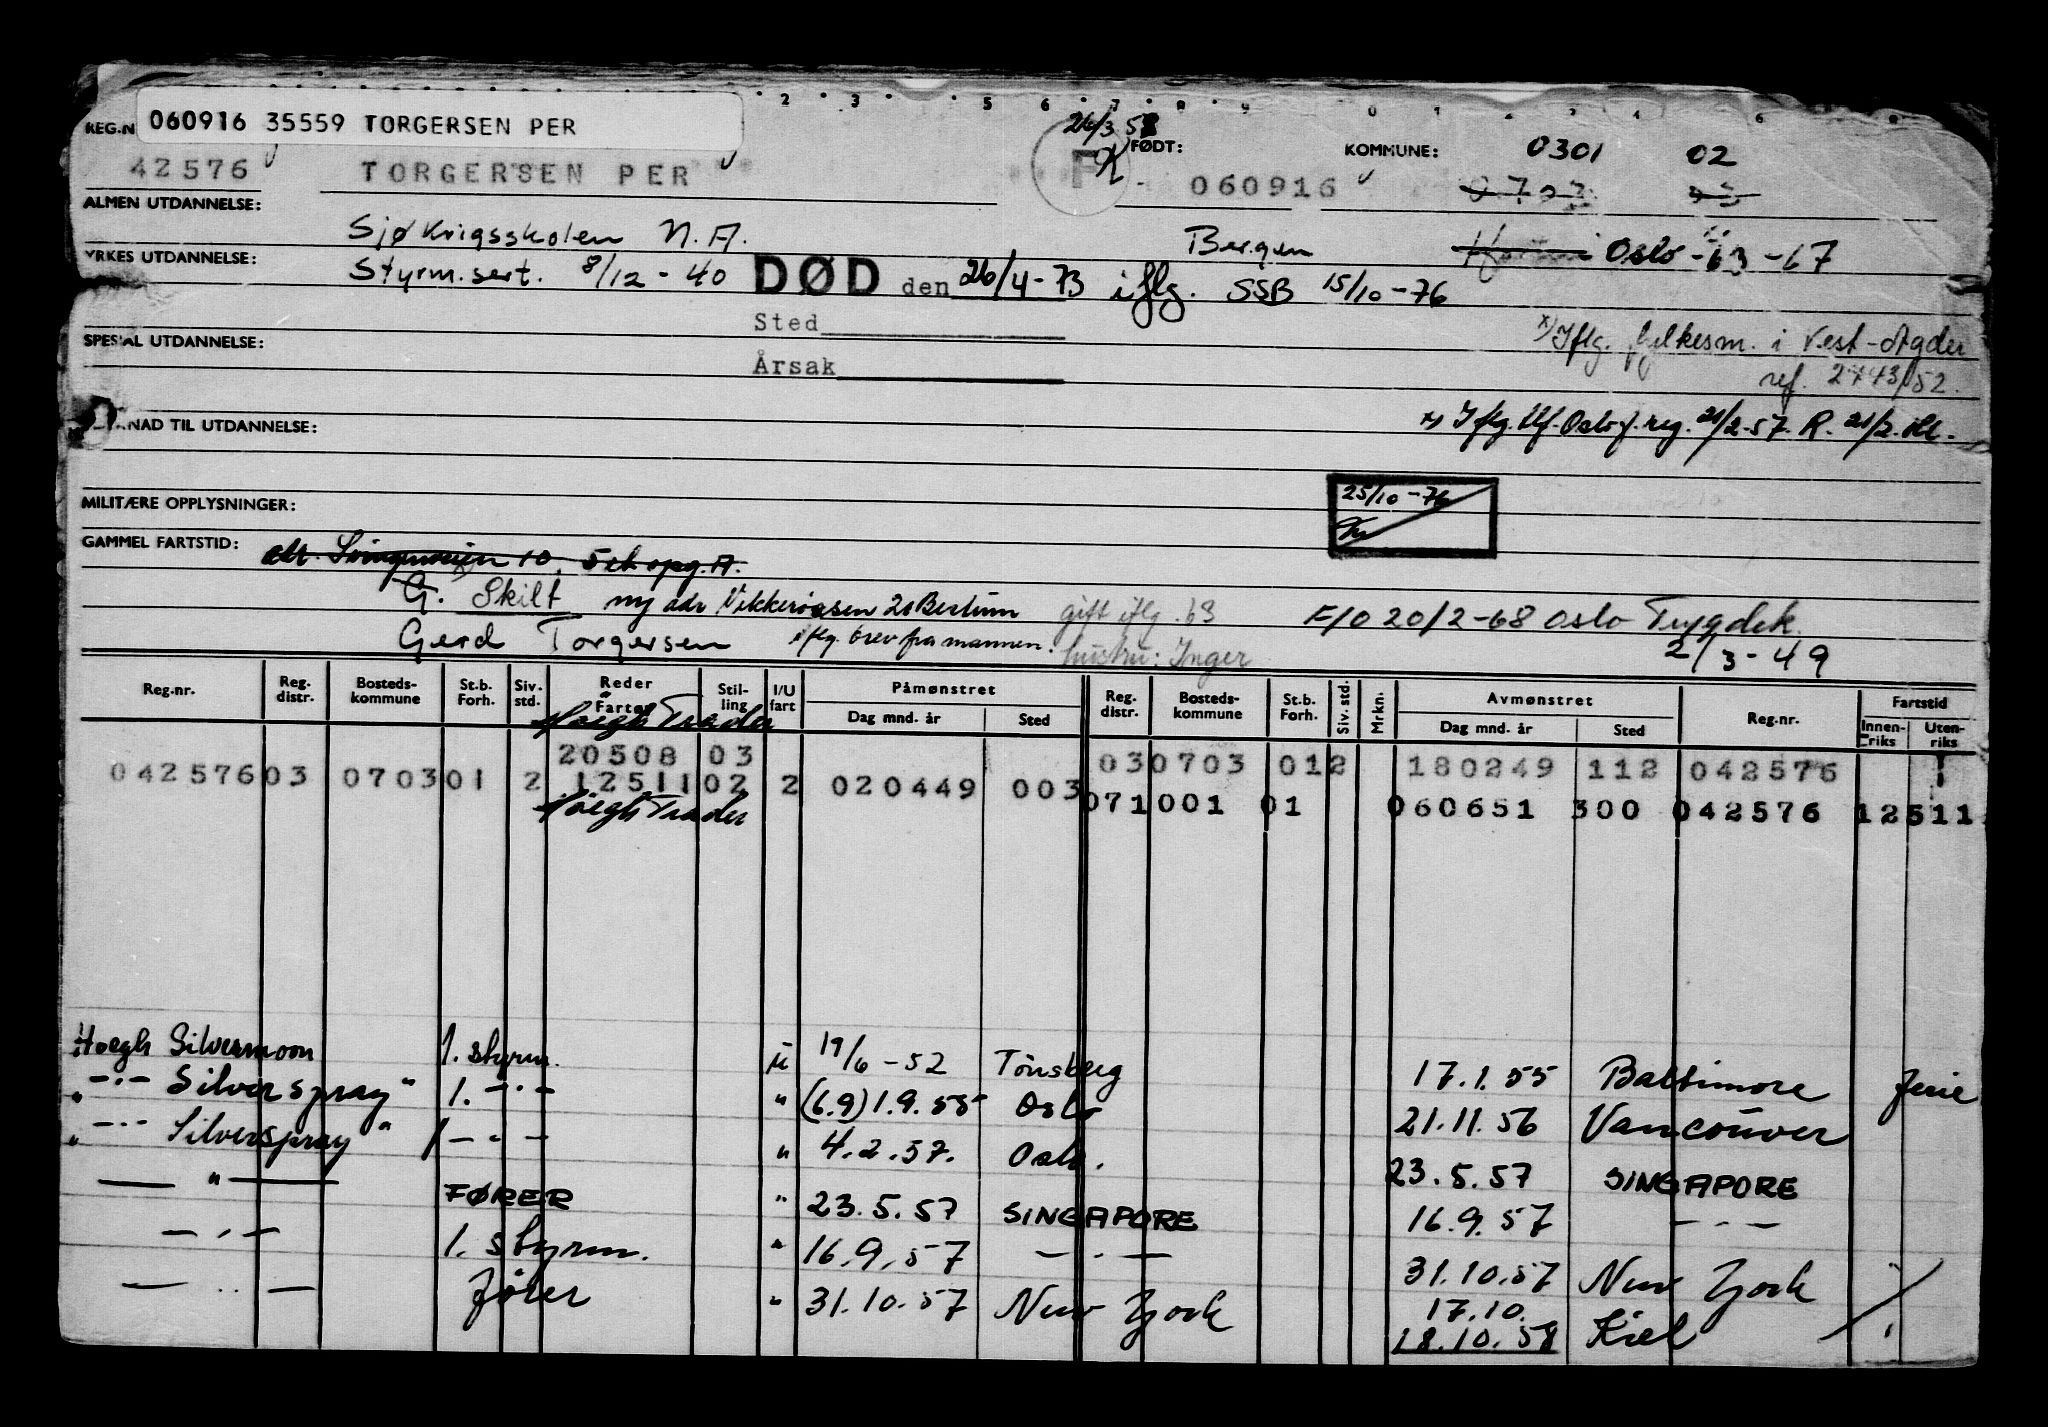 2 3 5 6 7 8 9 0 1 2 3 4 6 8
REG.N 060916 35559 TORGERSEN PER
26/3 58
42576 TORGERSEN PER F FØDT: 060916 KOMMUNE: 0301 02
ALMEN UTDANNELSE: Sjøkrigsskolen N.A. Bergen Oslo -63 -67
YRKES UTDANNELSE: Styrm.sert. 8/12 - 40 DØD den 26/4-73 iflg. SSB 15/10-76
Sted
x) Iflg. fylkesm. i Vest-Agder
SPESIAL UTDANNELSE:
Årsak
ref. 2443/52.
NAD TIL UTDANNELSE:
x) Iflg. Oslo f.reg. 21/2-57. R. 21/2.
MILITÆRE OPPLYSNINGER: 25/10-76
GAMMEL FARTSTID:
G. Skilt ny adr Vekkerøåsen 20 Bestum gift iflg. 63 F/O 20/2-68 Oslo Trygdek.
Gerd Torgersen iflg. brev fra mannen. hustru: Inger 2/3-49
Reg.nr. Reg. distr. Bosteds-kommune St.b. Forh. Siv. std. Reder Fartøy Stil-ling I/U fart Påmønstret Dag mnd. år Sted Reg. distr. Bosteds-kommune St.b. Forh. Siv. std. Mrkn. Avmønstret Dag mnd. år Sted Reg.nr. Fartstid Innen-riks Uten-riks
Høegh Trader
20508 03 030703 012 180249 112 042576
042576 03 0703 01 2 12511 02 2 020449 003 071001 01 060651 300 042576 12511
Høegh Trader
Hoegh Silvermoon 1. styrm. u 19/6 - 52 Tönsberg 17.1.55 Baltimore ferie
" -"- Silverspray" 1. -"- " (6.9) 1.9.55 Oslo 21.11.56 Vancouver
" -"- Silverspray" 1 -"- " 4.2.57. Oslo. 23.5.57 SINGAPORE
-"- FØRER " 23.5.57 SINGAPORE 16.9.57 -"-
-"- 1. styrm. " 16.9.57 -"- 31.10.57 New York
-"- fører " 31.10.57 New York 17.10.
18.10.58 Kiel